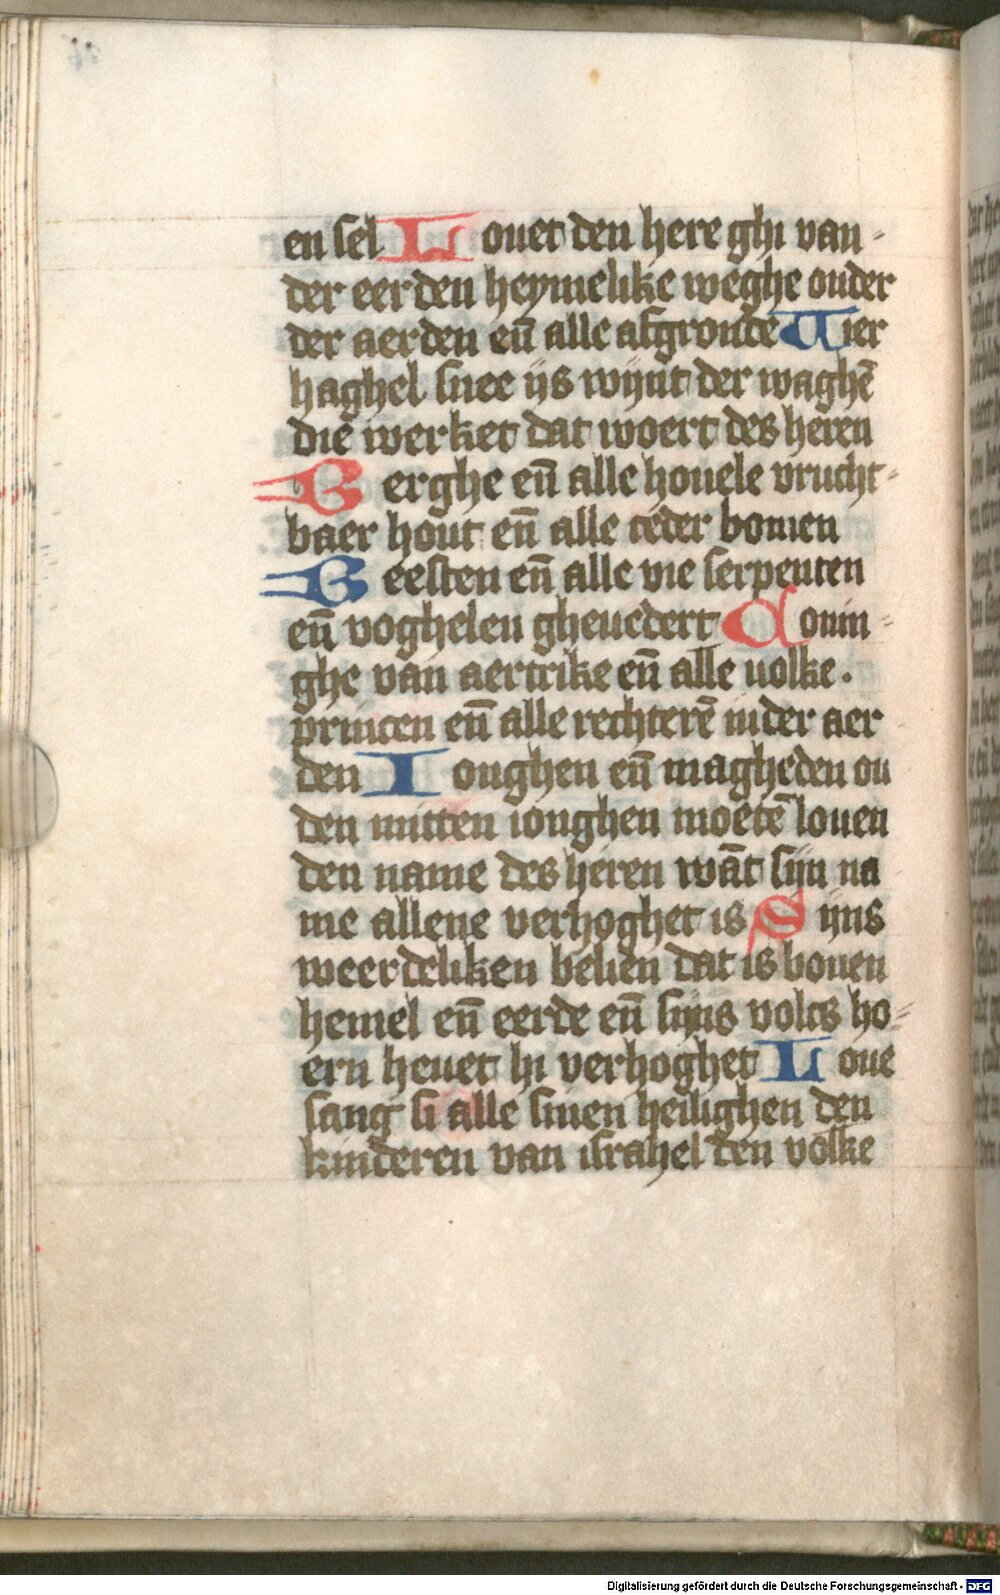 en sel Louet den here ghi van-
der eerden heymelike weghe onder
der aerden eñ alle afgronde Uier
haghel snee ijs wijnt der waghē
die werket dat woert des heren
Berghe eñ alle houele vrucht-
baer hout eñ alle ceder bomen
Beesten eñ alle vie serpenten
eñ voghelen gheuedert Conin-
ghe van aertrike eñ alle uolke.
princen eñ alle rechterē in der aer
den Ioughen eñ magheden ou
den mitten ionghen moetē louen
den name des heren wāt sijn na
me allene verhoghet is Sijns
weerdeliken belien dat is bouen
hemel eñ eerde eñ sijns volcs ho-
ern heuet hi verhoghet Loue
sang si alle sinen heilighen den
kinderen van israhel den volke
Digitalisierung gefördert durch die Deutsche Forschungsgemeinschaft - DFG